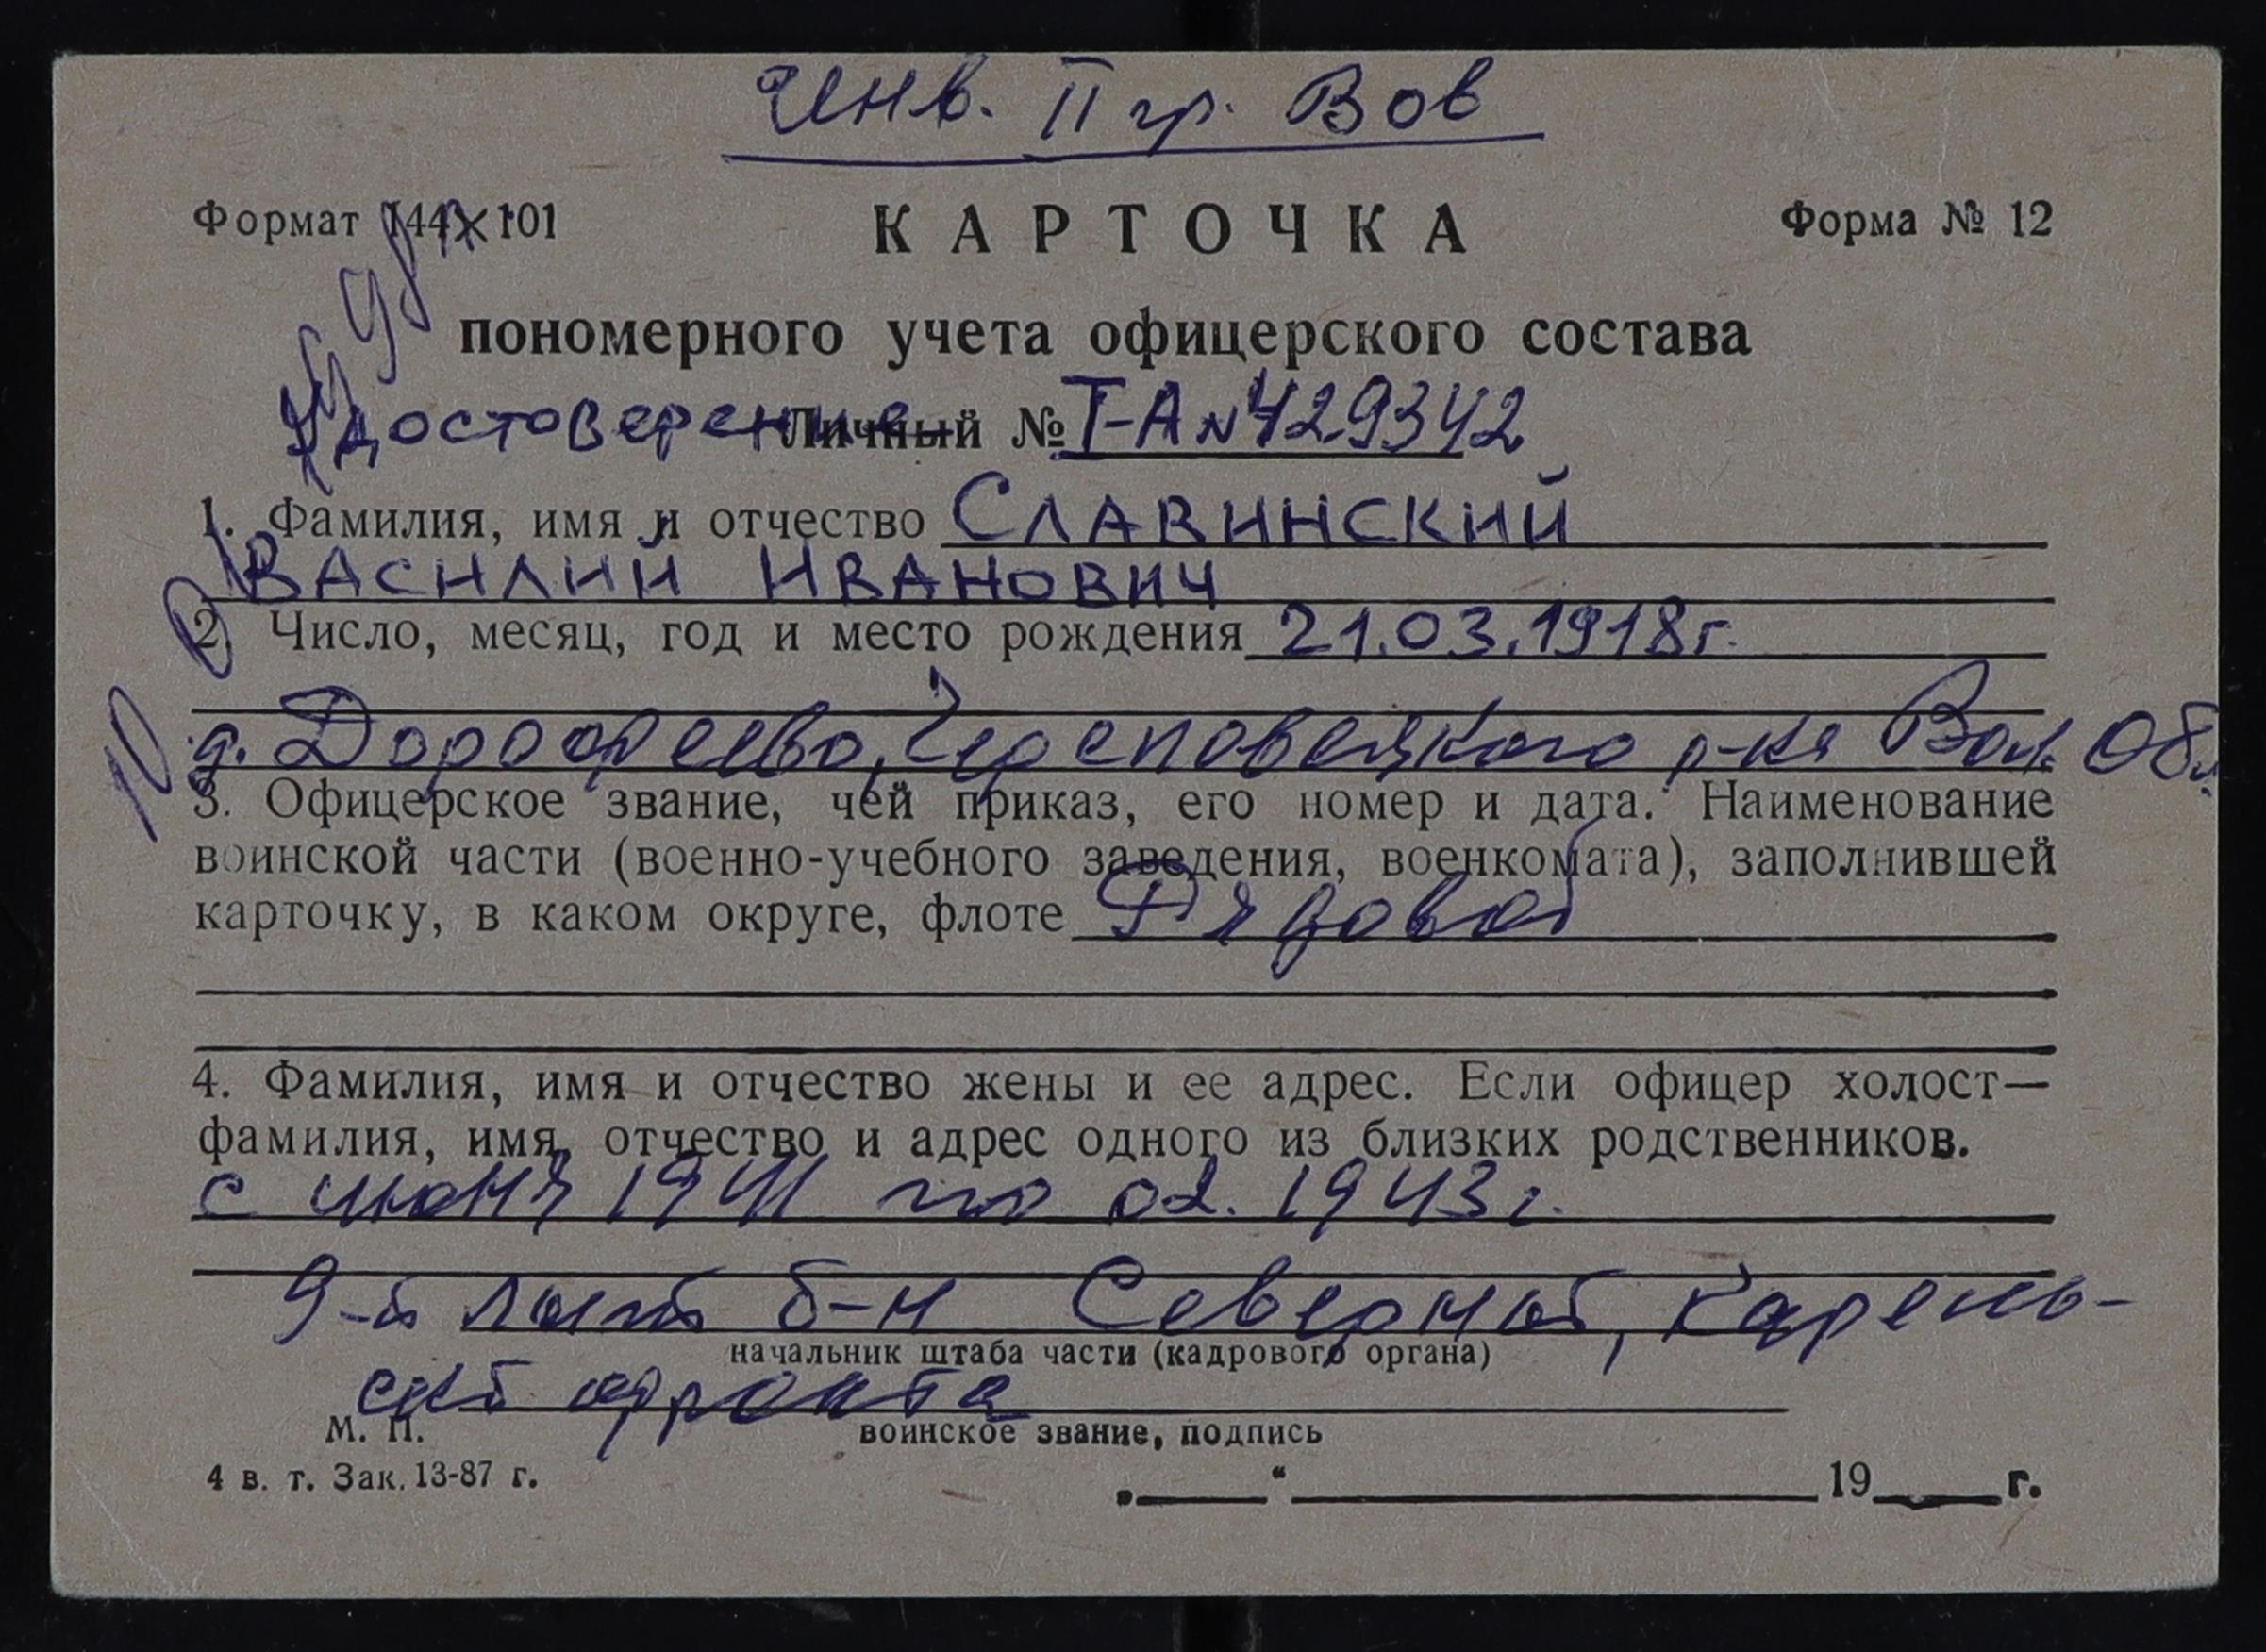 Инв. II гр. Вов
Формат 144×101
КАРТОЧКА
Форма № 12
пономерного учета офицерского состава
Удостоверение Личный № Т-А № 429342
1. Фамилия, имя и отчество СЛАВИНСКИЙ
ВАСИЛИЙ ИВАНОВИЧ
2. Число, месяц, год и место рождения 21.03.1918г.
д. Дорофеево, Череповецкого р-на Вол. Обл.
3. Офицерское звание, чей приказ, его номер и дата. Наименование
воинской части (военно-учебного заведения, военкомата), заполнившей
карточку, в каком округе, флоте Рядовой
4. Фамилия, имя и отчество жены и ее адрес. Если офицер холост—
фамилия, имя, отчество и адрес одного из близких родственников.
с июня 1941 по 02. 1943г.
9-й лыж б-н Северный, Карель-
начальник штаба части (кадрового органа)
ский фронта
М. П.
воинское звание, подпись
4 в. т. Зак. 13-87 г.
„ “ 19 г.